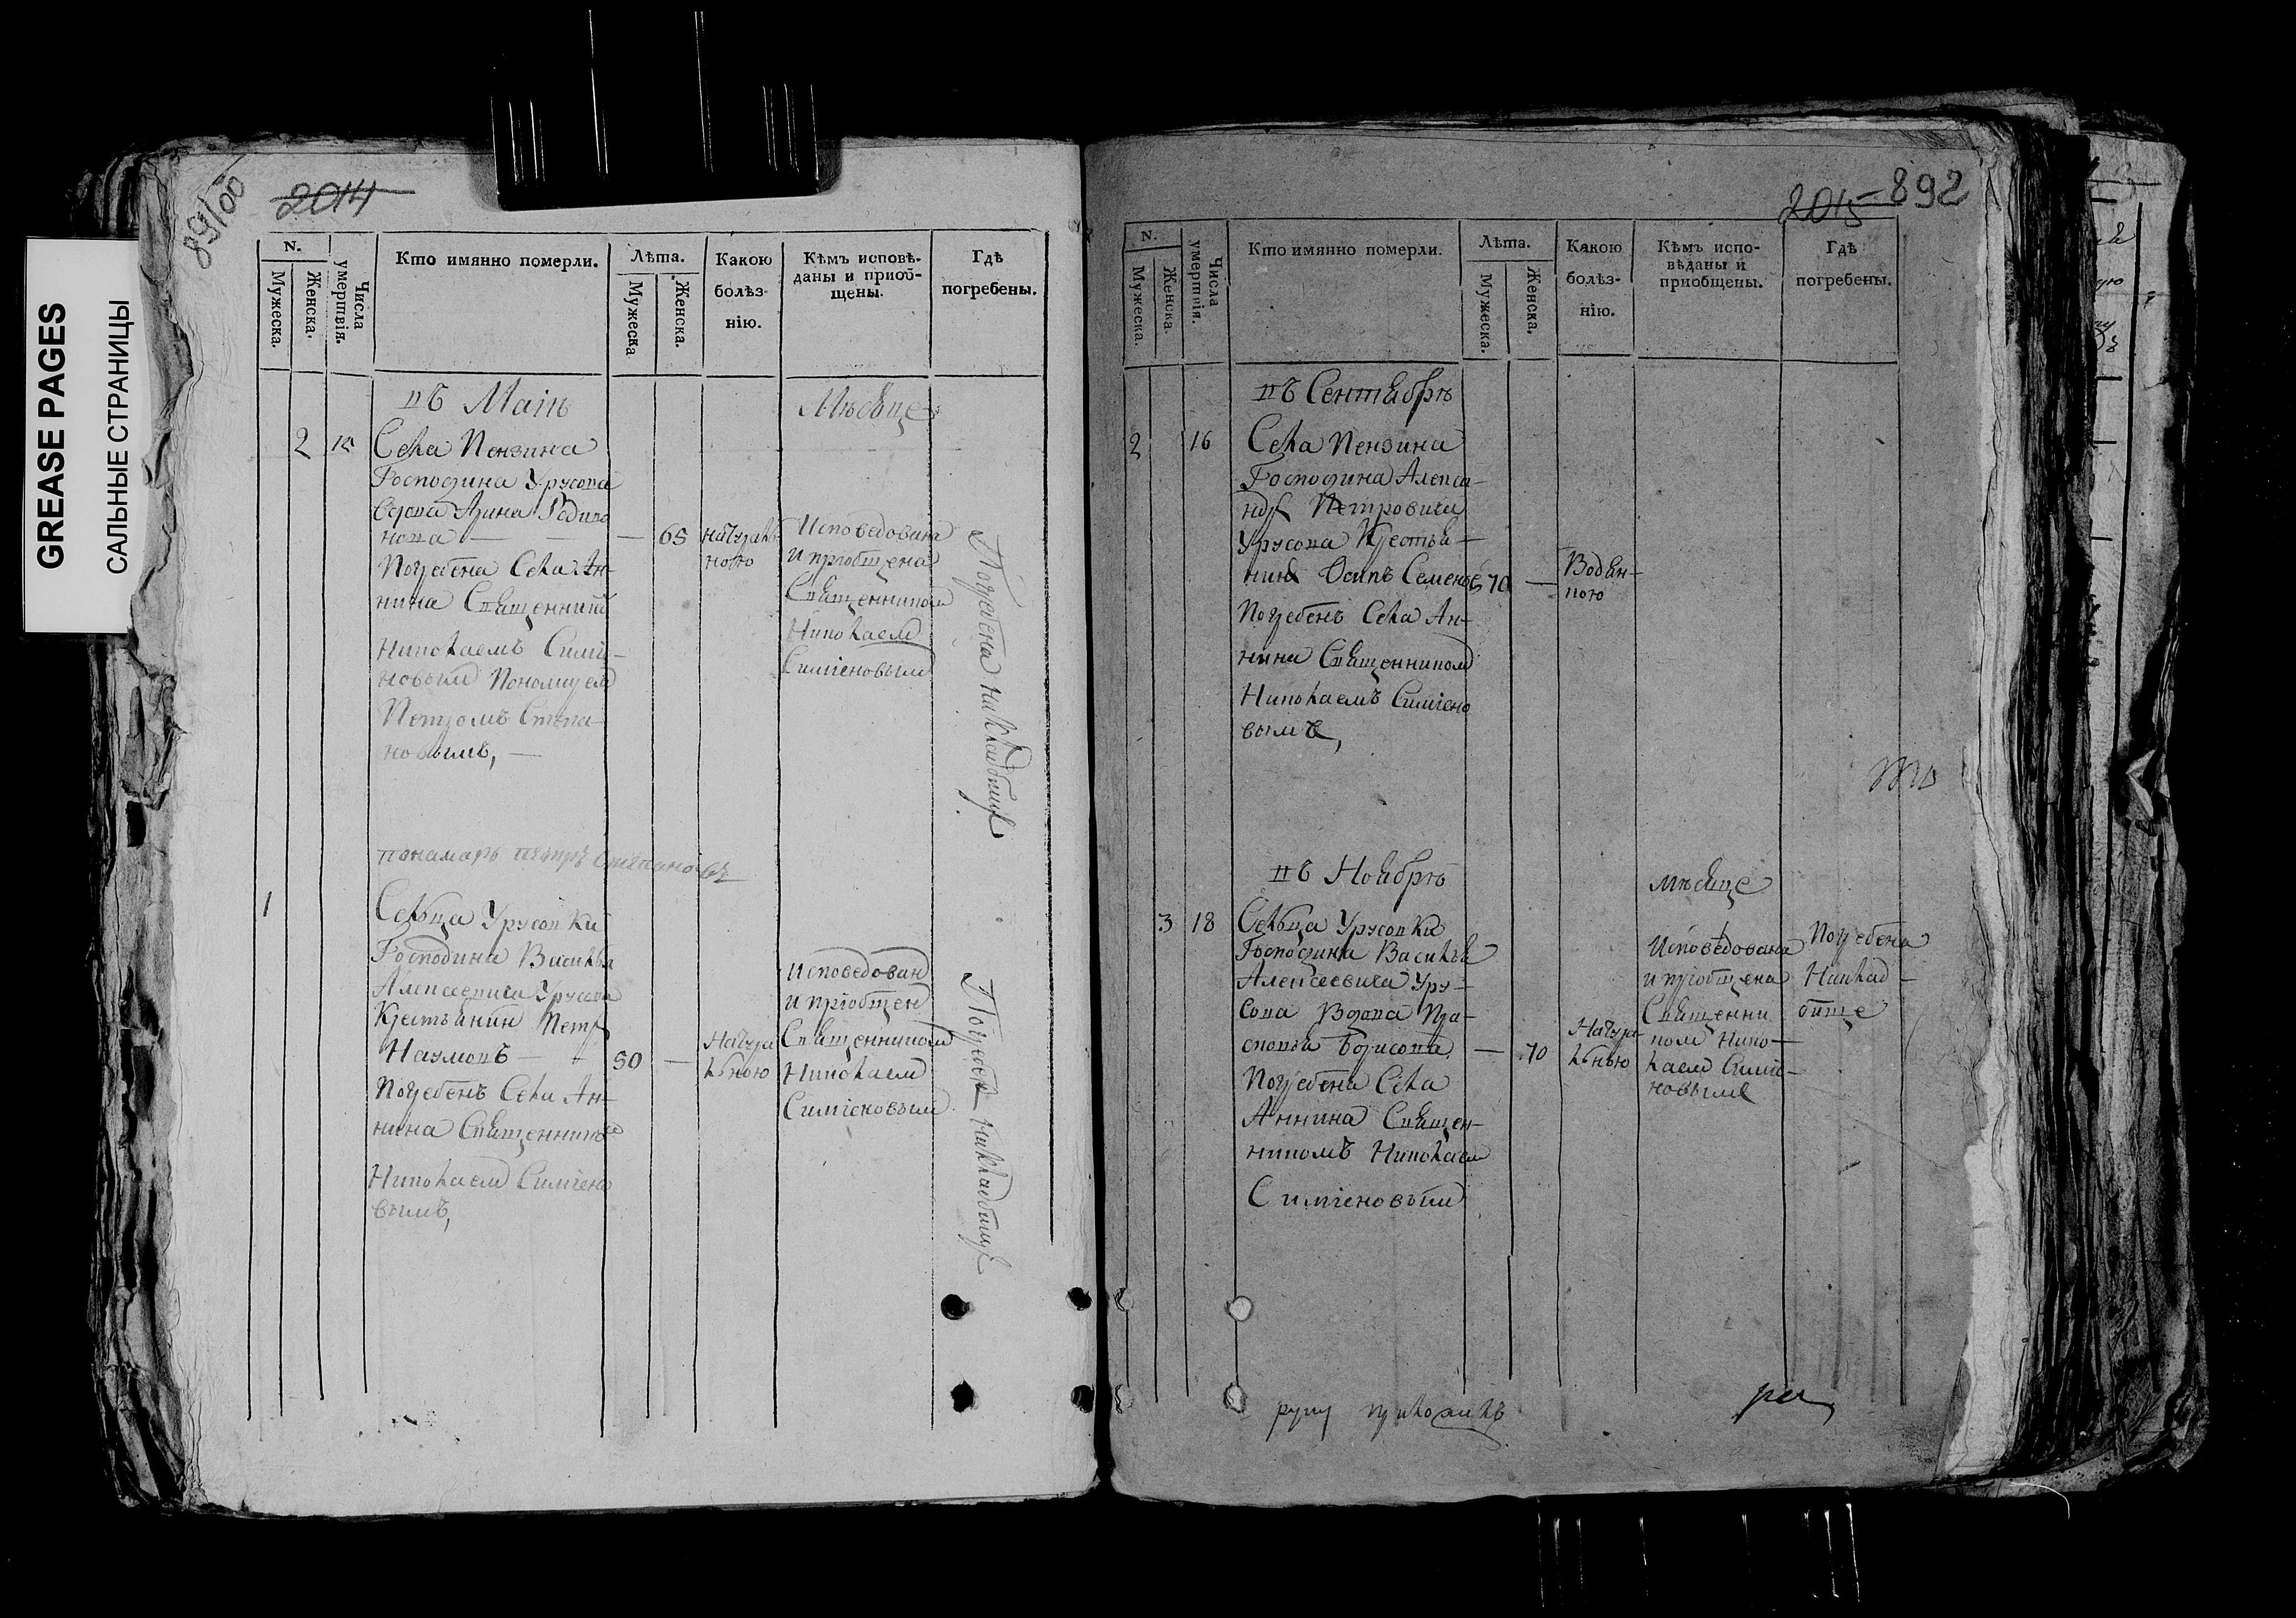 GREASE PAGES
САЛЬНЫЕ СТРАНИЦЫ
891 об
2014
N.
Мужеска.
Женска.
Числа умертвія.
Кто имянно померли.
Лѣта.
Мужеска
Женска.
Какою болѣз-
нію.
Кѣмъ исповѣ-
даны и приоб-
щены.
Гдѣ
погребены.
въ Маіѣ
Мѣсяце
2
Села Пензина
Господина Урусова
Вдова Арина Родио
нова — — — 65
натураль
ною
Погребена Села Ан-
нина Священник
Николаемъ Симіо-
новым Пономарем
Петромъ Степа-
новымъ, —
Исповедована
и приобщена
Священником
Николаем
Симіеновым
Погребена на кладбищѣ
понамарь петръ степановъ
1
Сельца Урусовки
Господина Василья
Алексеевича Урусова
Крестьянин Петр
Наумовъ — 50 —
Натура
льною
Погребенъ Села Ан-
нина Священнико
Николаем Симіено
вымъ,
исповедован
и приобщен
Священником
Николаем
Симіеновым
Погребен на кладбищѣ
2015 892
N.
Мужеска.
Женска.
Числа умертвія.
Кто имянно померли.
Лѣта.
Мужеска.
Женска.
Какою
болѣз-
нію.
Кѣмъ испо-
вѣданы и
приобщены.
Гдѣ
погребены.
въ Сентябрѣ
2 16
Села Пензина
Господина Алекса-
ндр Петровича
Урусова Крестья-
нин Осипъ Семенов 70 —
Водян-
кою
Погребенъ Села Ан-
нина Священником
Николаемъ Симіено
вымъ,
въ Ноябрѣ
мѣсяце
3 18
Сельца Урусовки
Господина Василья
Алексеевича Уру-
сова Вдова Пра-
сковья Борисова — 70
Натура-
льною
Погребена Села
Аннина Священ-
никомъ Николаем
Симіеновым
Исповедована
и приобщена
Священни
ком Нико-
лаем Симіо-
новымъ
Погребена
На клад-
бище
руку приложилъ